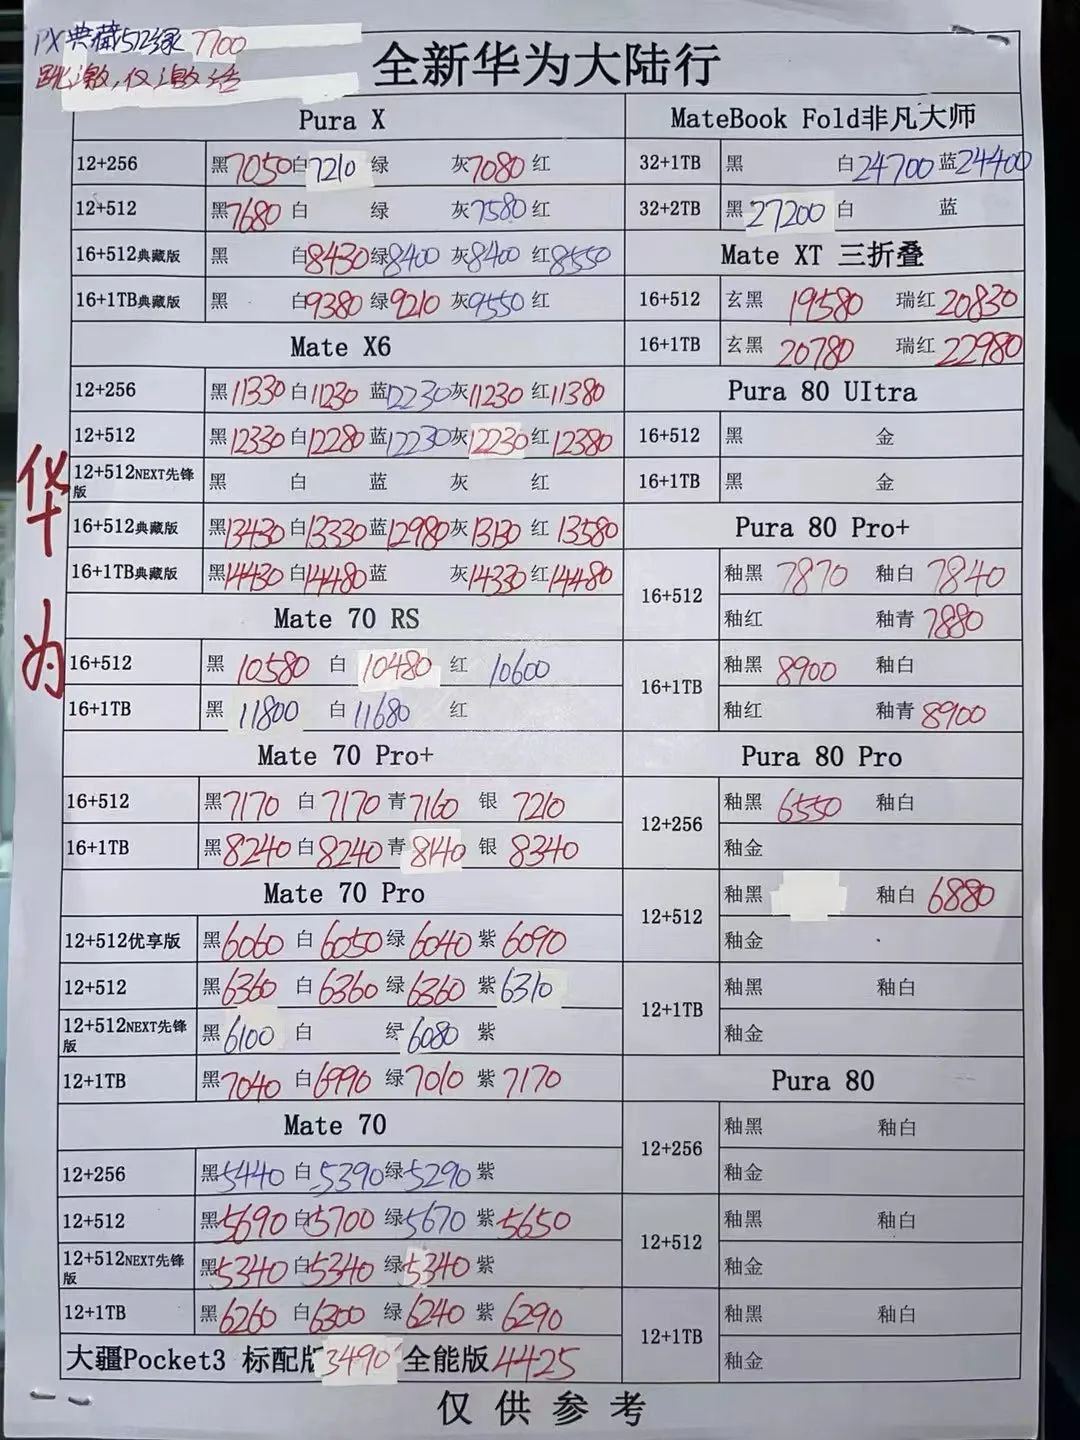 PX典藏512绿 7700
跳激,仅激活
全新华为大陆行
华为
Pura X
12+256 黑7050 白7210 绿 灰7080 红
12+512 黑7680 白 绿 灰7580 红
16+512典藏版 黑 白8430 绿8400 灰8400 红8550
16+1TB典藏版 黑 白9380 绿9210 灰9550 红
Mate X6
12+256 黑11330 白11230 蓝12230 灰11230 红11380
12+512 黑12330 白12280 蓝12230 灰12230 红12380
12+512NEXT先锋版 黑 白 蓝 灰 红
16+512典藏版 黑13430 白13330 蓝12980 灰13130 红13580
16+1TB典藏版 黑14430 白14480 蓝 灰14330 红14480
Mate 70 RS
16+512 黑 10580 白 10480 红 10600
16+1TB 黑 11800 白 11680 红
Mate 70 Pro+
16+512 黑7170 白7170 青7160 银 7210
16+1TB 黑8240 白8240 青8140 银 8340
Mate 70 Pro
12+512优享版 黑6060 白6050 绿6040 紫6090
12+512 黑6360 白6360 绿6360 紫6310
12+512NEXT先锋版 黑6100 白 绿6080 紫
12+1TB 黑7040 白6990 绿7010 紫7170
Mate 70
12+256 黑5440 白5390 绿5290 紫
12+512 黑5690 白5700 绿5670 紫5650
12+512NEXT先锋版 黑5340 白5340 绿5340 紫
12+1TB 黑6260 白6300 绿6240 紫6290
大疆Pocket3 标配版3490 全能版4425
MateBook Fold非凡大师
32+1TB 黑 白24700 蓝24400
32+2TB 黑27200 白 蓝
Mate XT 三折叠
16+512 玄黑 19580 瑞红20830
16+1TB 玄黑 20780 瑞红22980
Pura 80 UItra
16+512 黑 金
16+1TB 黑 金
Pura 80 Pro+
16+512 釉黑 7870 釉白 7840
釉红 釉青 7880
16+1TB 釉黑 8900 釉白
釉红 釉青8900
Pura 80 Pro
12+256 釉黑 6550 釉白
釉金
12+512 釉黑 釉白 6880
釉金
12+1TB 釉黑 釉白
釉金
Pura 80
12+256 釉黑 釉白
釉金
12+512 釉黑 釉白
釉金
12+1TB 釉黑 釉白
釉金
仅供参考